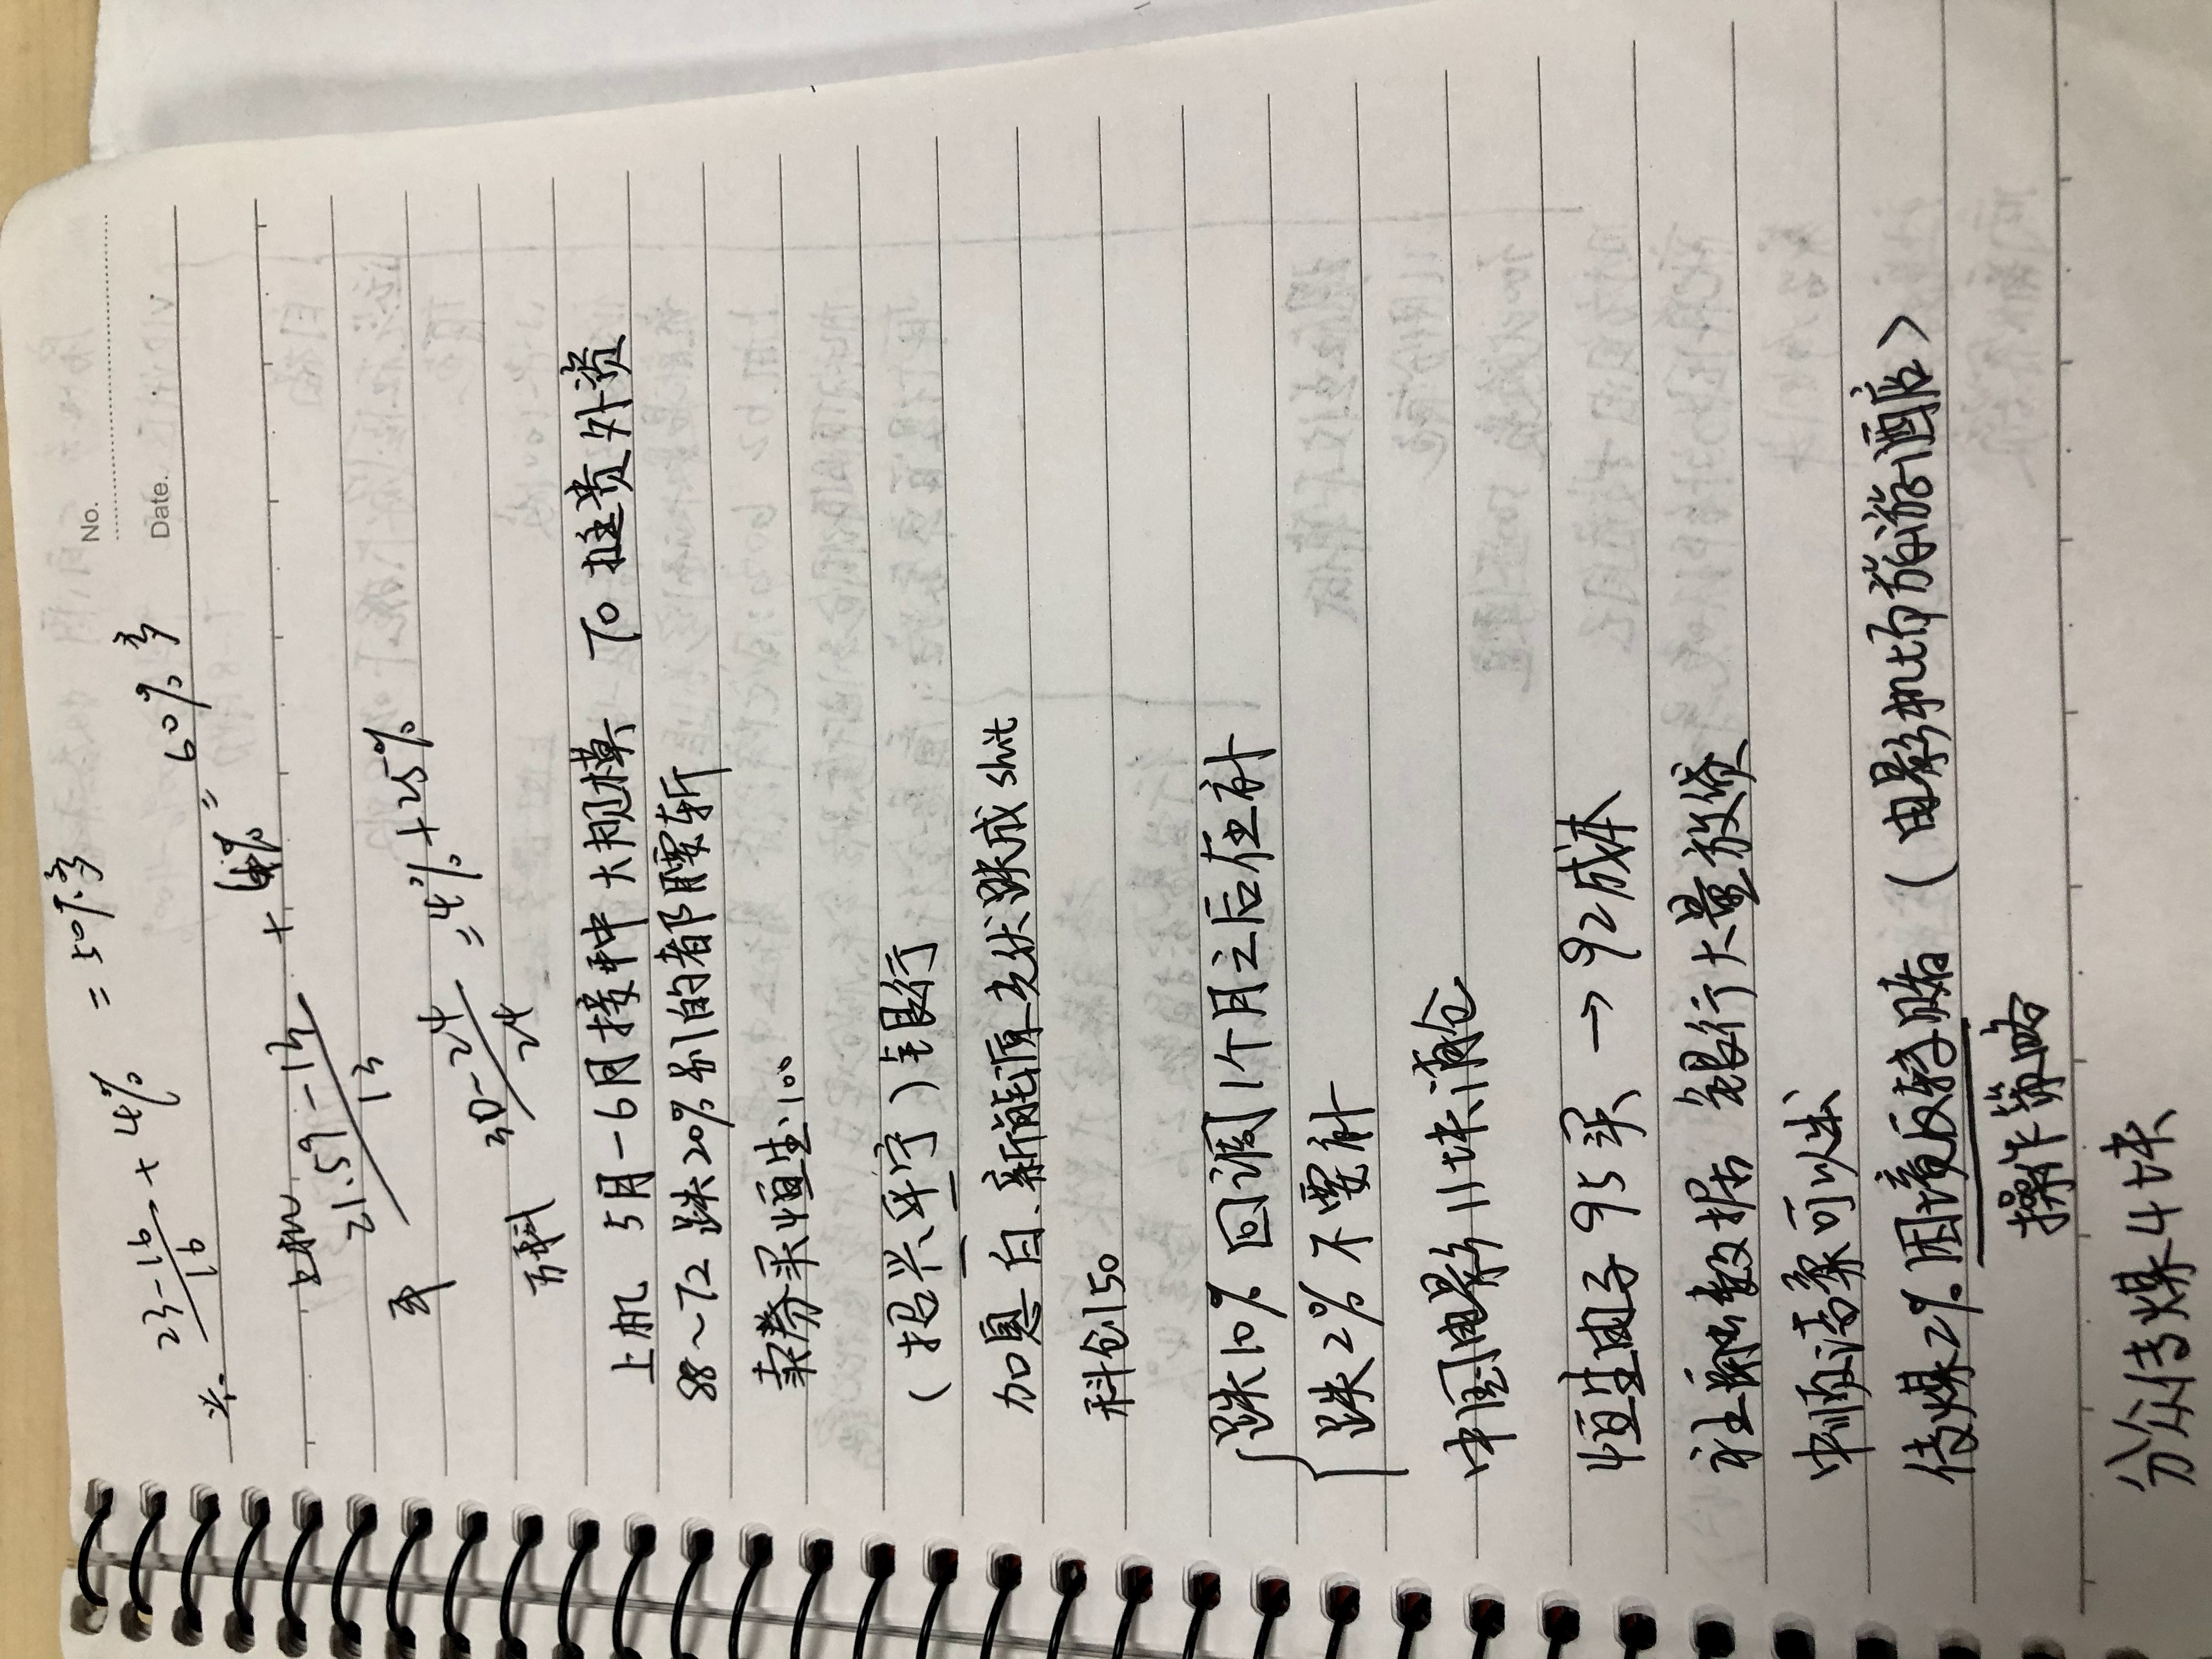 No.
Date.
兴. 23-16/16 + 4% = 50%多
上机
平 21.59-13/13 + 4% = 60%多
万科 30-24/24 = 4%+25%
上机 5月-6月接种大规模 70 挺贵外资
88~72 跌20%别的都腰斩
卖券买恒生100
(招兴平宁)银行
加息 白.新能源光伏跌成shit
科创50
跌10% 回调1个月之后在补
跌2% 不要补
中国电影11块清仓
恒生电子 95买 → 92成本
社融数据 银行大量放贷
中顺洁柔可以出
传媒2% 困境反转赌 (电影机场旅游酒店)
操作策略
分众传媒4块